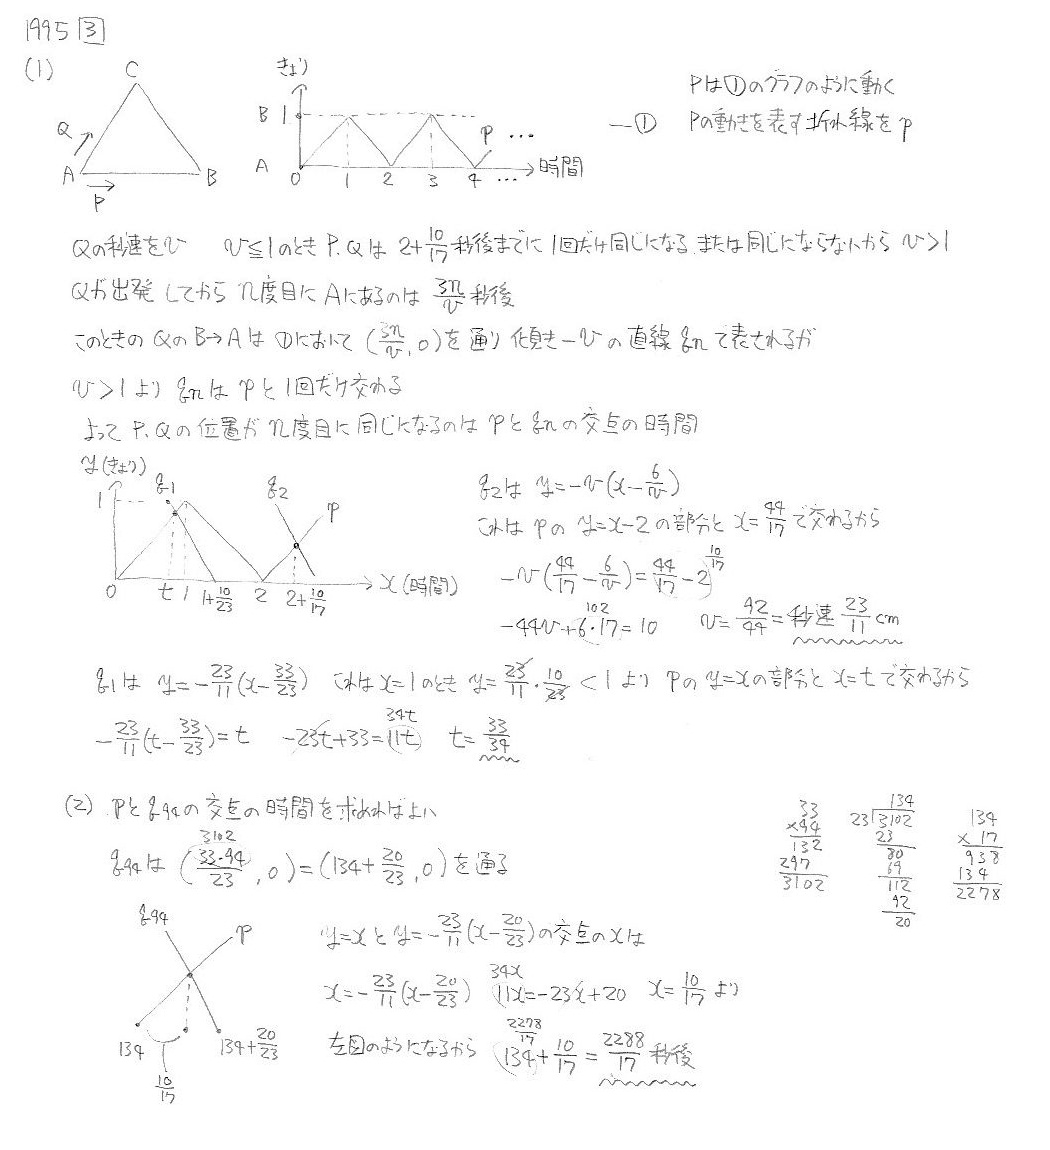 1995 3
(1)
C
Q
A
B
P
きょり
B 1
A
0 1 2 3 4 … 時間
P …
—①
Pは①のグラフのように動く
Pの動きを表す折れ線をp
Qの秒速をv v≦1のとき P,Qは 2+10/17秒後までに1回だけ同じになる または同じにならないから v>1
Qが出発してから n度目にAにあるのは 3n/v 秒後
このときの QのB→Aは ①において (3n/v, 0)を通り 傾き-vの直線 qnで表されるが
v>1より qnは pと1回だけ交わる
よって P,Qの位置が n度目に同じになるのは pとqnの交点の時間
y(きょり)
1
q1
q2
p
0 t 1 1+10/23 2 2+10/17
x(時間)
q2は y=-v(x-6/v)
これは pの y=x-2の部分と x=44/17で交わるから
-v(44/17-6/v)=44/17-2 10/17
-44v+6・17=10 102 v=92/44=秒速 23/11 cm
q1は y=-23/11(x-33/23) これはx=1のとき y=23/11・10/23<1より pのy=xの部分と x=tで交わるから
-23/11(t-33/23)=t -23t+33=11t 34t t=33/34
(2) pとq94の交点の時間を求めればよい
q94は (33・94/23, 0)=(134+20/23, 0)を通る 3102
33
×94
132
297
3102
134
23)3102
23
80
69
112
92
20
134
×17
938
134
2278
q94
p
134
134+20/23
10/17
y=xと y=-23/11(x-20/23)の交点のxは
x=-23/11(x-20/23) 11x=-23x+20 34x x=10/17より
左図のようになるから 134+10/17=2288/17秒後 2278/17